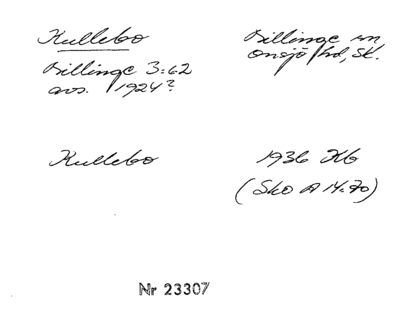 Kullebo
Billinge sn
Onsjö hd, Sk.
Billinge 3:62
avs. 1924?
Kullebo
1936 Kb
(Sko A 14:70)
Nr 23307